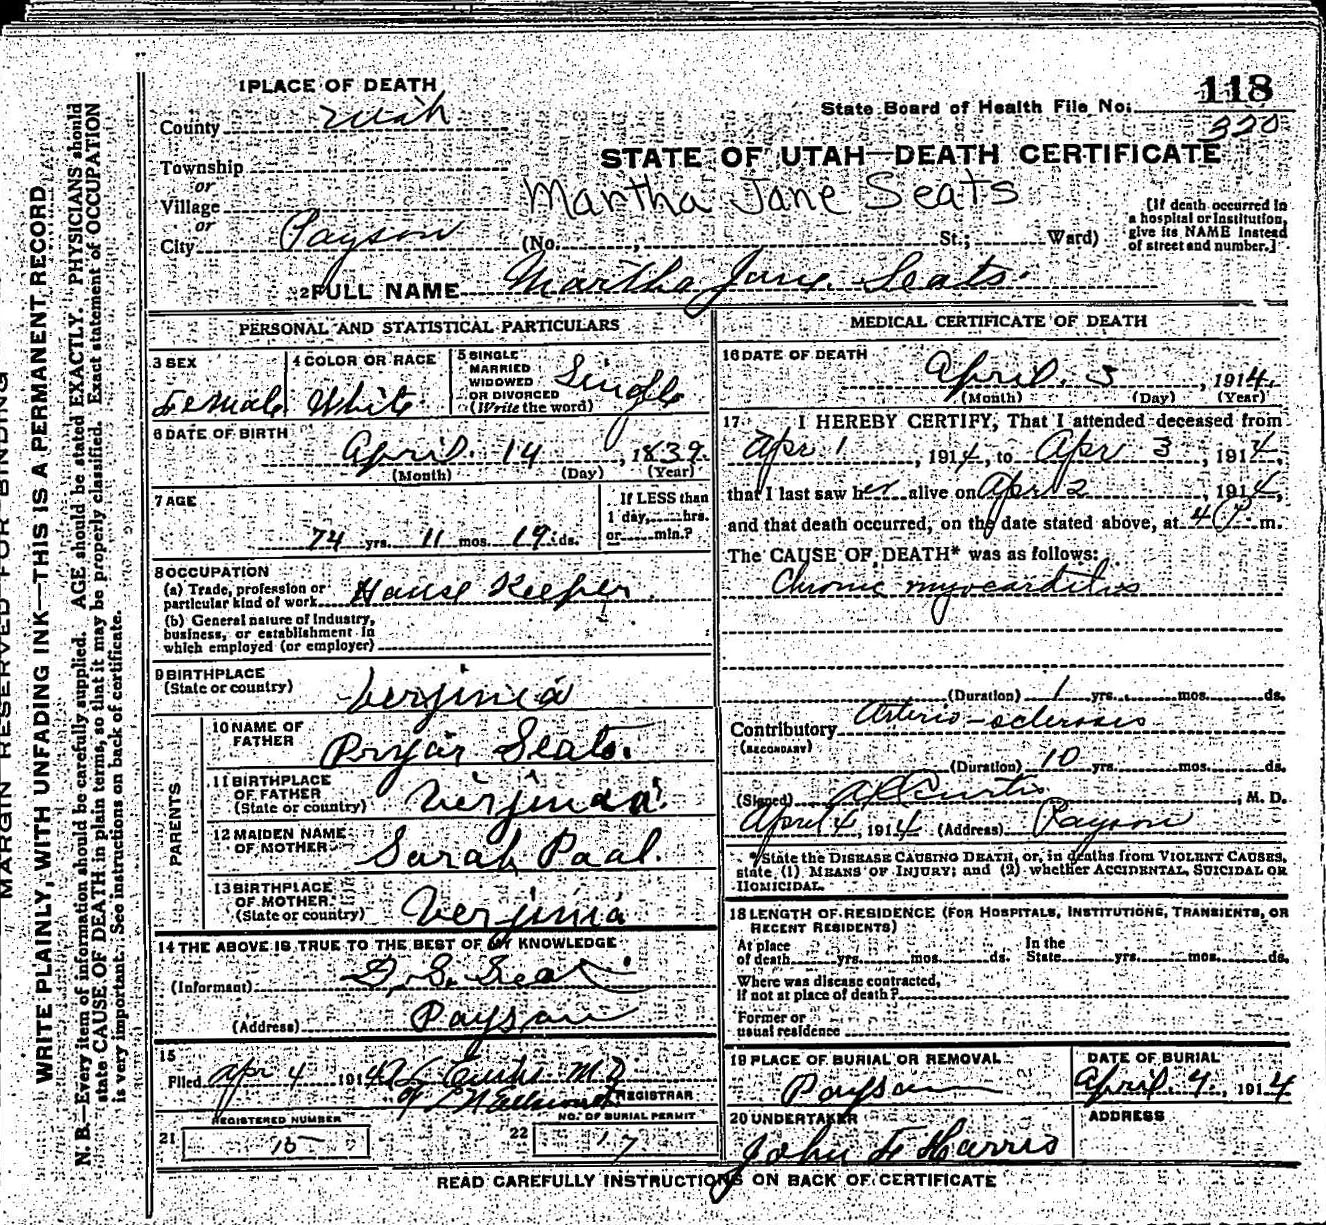 MARGIN RESERVED FOR BINDING
WRITE PLAINLY, WITH UNFADING INK—THIS IS A PERMANENT RECORD
N. B.—Every item of information should be carefully supplied. AGE should be stated EXACTLY. PHYSICIANS should
state CAUSE OF DEATH in plain terms, so that it may be properly classified. Exact statement of OCCUPATION
is very important. See instructions on back of certificate.
1 PLACE OF DEATH
County Utah
Township
or
Village
or
City Payson
118
State Board of Health File No.
320
STATE OF UTAH—DEATH CERTIFICATE
Martha Jane Seats
(No. , St.; Ward)
[If death occurred in
a hospital or institution,
give its NAME instead
of street and number.]
2 FULL NAME Martha Jane Seats
PERSONAL AND STATISTICAL PARTICULARS
3 SEX
Female
4 COLOR OR RACE
White
5 SINGLE
MARRIED
WIDOWED
OR DIVORCED
(Write the word)
Single
6 DATE OF BIRTH
April 14, 1839
(Month) (Day) (Year)
7 AGE
74 yrs. 11 mos. 19 ds.
If LESS than
1 day, hrs.
or min.?
8 OCCUPATION
(a) Trade, profession or
particular kind of work House Keeper
(b) General nature of Industry,
business, or establishment in
which employed (or employer)
9 BIRTHPLACE
(State or country)
Verjinia
PARENTS
10 NAME OF
FATHER
Pryar Seats.
11 BIRTHPLACE
OF FATHER
(State or country)
Verjinia
12 MAIDEN NAME
OF MOTHER
Sarah Paal.
13 BIRTHPLACE
OF MOTHER
(State or country)
Verjinia
14 THE ABOVE IS TRUE TO THE BEST OF MY KNOWLEDGE
(Informant) D. S. Seat
(Address) Payson
15
Filed Apr 4 1914 A L Curtis M D
REGISTRAR
REGISTERED NUMBER
21 15
NO. OF BURIAL PERMIT
22 17
MEDICAL CERTIFICATE OF DEATH
16 DATE OF DEATH
April 3, 1914
(Month) (Day) (Year)
17 I HEREBY CERTIFY, That I attended deceased from
Apr 1, 1914, to Apr 3, 1914,
that I last saw her alive on Apr 2, 1914,
and that death occurred, on the date stated above, at 4 P m.
The CAUSE OF DEATH* was as follows:
Chronic myocarditis
(Duration) 1 yrs. mos. ds.
Contributory Arterio-sclerosis
(SECONDARY)
(Duration) 10 yrs. mos. ds.
(Signed) A L Curtis, M. D.
April 4, 1914 (Address) Payson
*State the DISEASE CAUSING DEATH, or, in deaths from VIOLENT CAUSES,
state (1) MEANS OF INJURY; and (2) whether ACCIDENTAL, SUICIDAL OR
HOMICIDAL.
18 LENGTH OF RESIDENCE (FOR HOSPITALS, INSTITUTIONS, TRANSIENTS, OR
RECENT RESIDENTS)
At place
of death yrs. mos. ds.
In the
State yrs. mos. ds.
Where was disease contracted,
if not at place of death?
Former or
usual residence
19 PLACE OF BURIAL OR REMOVAL
Payson
DATE OF BURIAL
April 4, 1914
20 UNDERTAKER
John F Harris
ADDRESS
READ CAREFULLY INSTRUCTIONS ON BACK OF CERTIFICATE